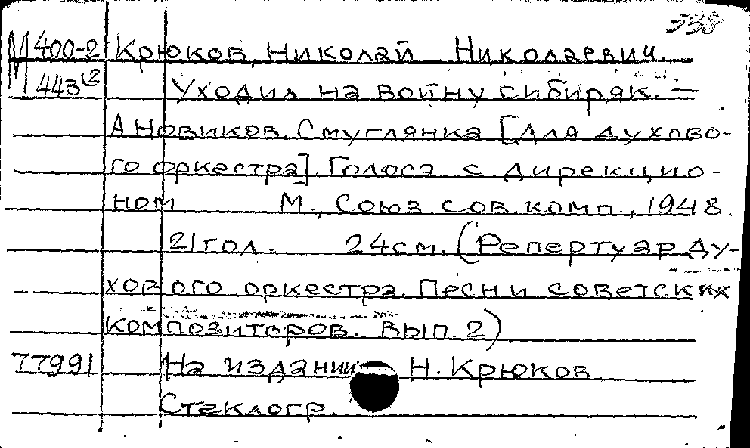 338
М400-2 Крюков, Николай Николаевич.
М 443 Уходил на войну сибиряк. —
А.Новиков. Смуглянка [Для духово-
го оркестра]. Голоса с дирекцио-
ном М., Союз сов. комп., 1948.
21 гол. 24 см. (Репертуар ду-
хового оркестра. Песни советских
композиторов. Вып. 2)
77991 На издании Н. Крюков
Стеклогр.